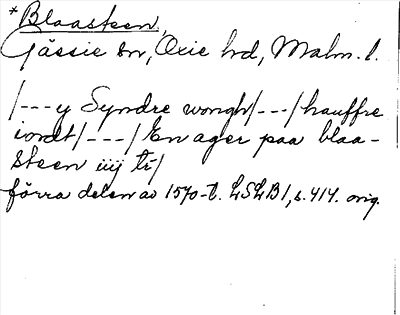 *Blaasteen,
Gässie sn, Oxie hd, Malm. l.
/---y Syndre wongh/---/hauffre
iordt/---/En ager paa blaa-
steen iiij tr/
förra delen av 1570-t. LSLB1, s. 414. orig.